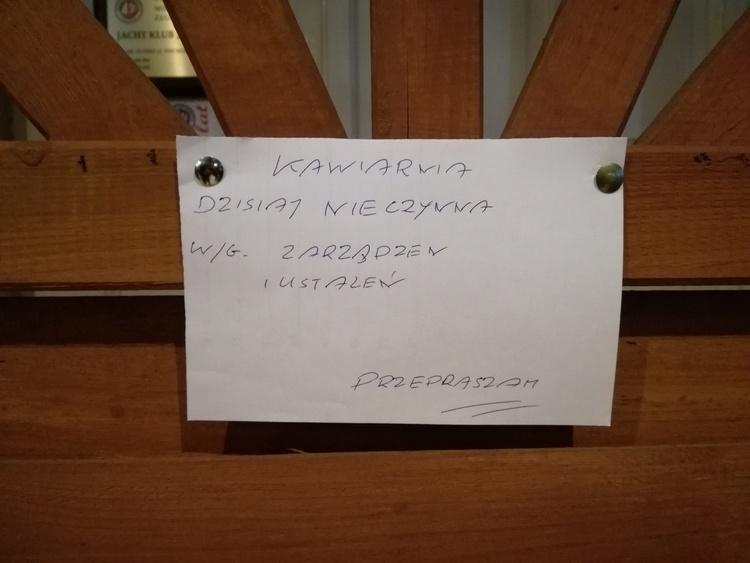 JACHT KLUB
lat
KAWIARNIA
DZISIAJ NIECZYNNA
W/G. ZARZĄDZEN
I USTALEŃ
PRZEPRASZAM